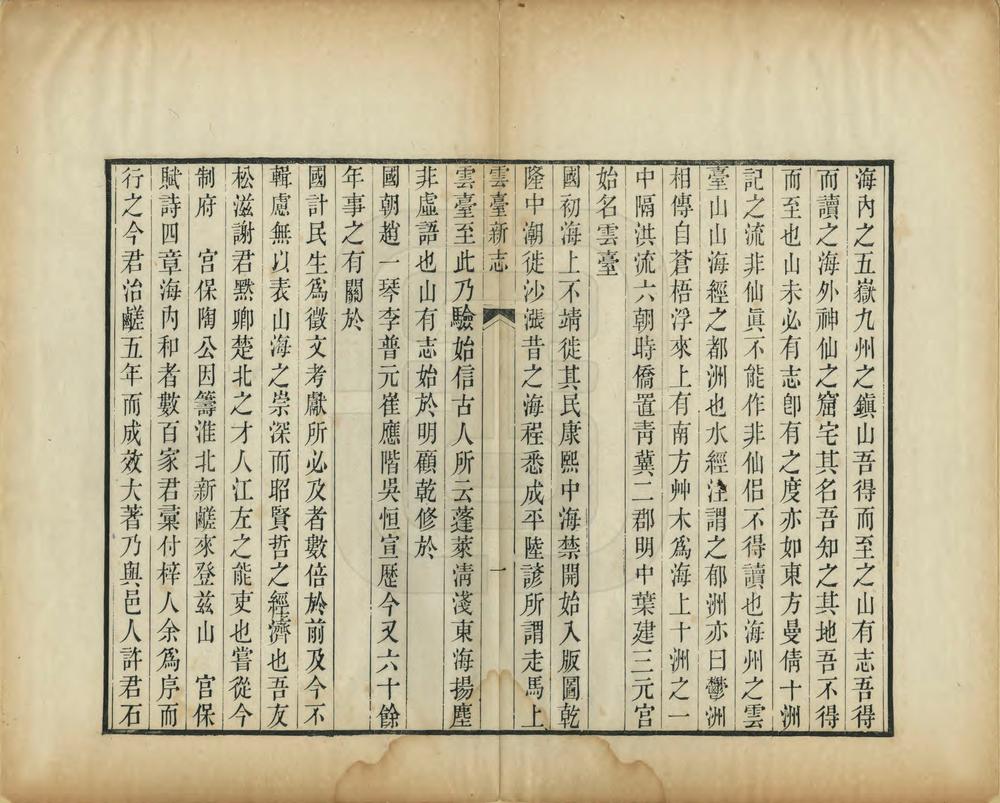 海內之五嶽九州之鎮山吾得而至之山有志吾得
而讀之海外神仙之窟宅其名吾知之其地吾不得
而至也山未必有志卽有之度亦如東方曼倩十洲
記之流非仙眞不能作非仙侶不得讀也海州之雲
臺山山海經之都洲也水經注謂之郁洲亦曰鬱洲
相傳自蒼梧浮來上有南方艸木爲海上十洲之一
中隔洪流六朝時僑置靑冀二郡明中葉建三元宮
始名雲臺
國初海上不靖徙其民康熙中海禁開始入版圖乾
隆中潮徙沙漲昔之海程悉成平陸諺所謂走馬上
雲臺新志 一
雲臺至此乃驗始信古人所云蓬萊淸淺東海揚塵
非虛語也山有志始於明顧乾修於
國朝趙一琴李普元崔應階吳恒宣歷今又六十餘
年事之有關於
國計民生爲徵文考獻所必及者數倍於前及今不
輯慮無以表山海之崇深而昭賢哲之經濟也吾友
松滋謝君黙卿楚北之才人江左之能吏也嘗從今
制府 宮保陶公因籌淮北新鹺來登兹山 宮保
賦詩四章海內和者數百家君彙付梓人余爲序而
行之今君治鹺五年而成效大著乃與邑人許君石